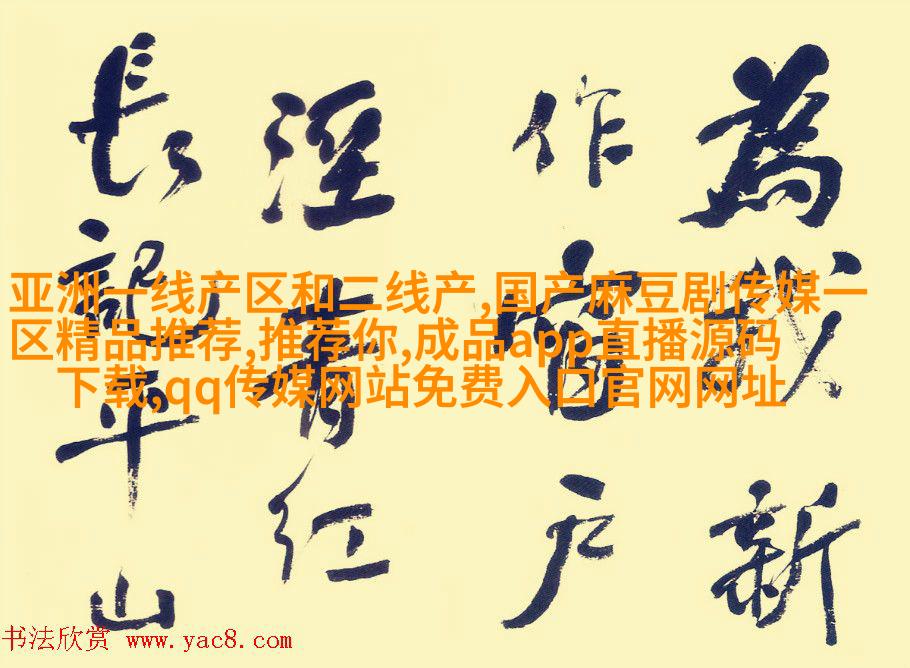 為我新
作窗户
溼青红
長記平山
亚洲一线产区和二线产,国产麻豆剧传媒一
区精品推荐,推荐你,成品app直播源码
下载,qq传媒网站免费入口官网网址
书法欣赏 www.yac8.com